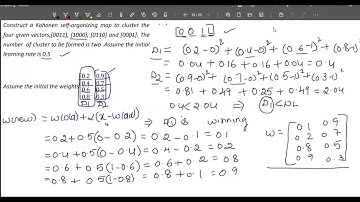 Construct a Kohonen self-organizing map to cluster the
four given vectors,[0011], [1000], [0110] and [0001]. The
number of cluster to be formed is two .Assume the initial
learning rate is 0.5
Assume the initial the weights
0.2 0.9
0.4 0.7
0.6 0.5
0.8 0.3
D1 D2
[0 0 1 1]
D1 = (0.2-0)² + (0.4-0)² + (0.6-1)² + (0.8-1)²
= 0.04 + 0.16 + 0.16 + 0.04 = 0.4
D2 = (0.9-0)² + (0.7-0)² + (0.5-1)² + (0.3-1)²
= 0.81 + 0.49 + 0.25 + 0.49 = 2.04
0.4 < 2.04 ⇒ D1 < D2
w(new) = w(old) + α(x - w(old)) ⇒ D1 is winning
= 0.2 + 0.5(0 - 0.2) = 0.2 - 0.1 = 0.1
= 0.4 + 0.5(0 - 0.4) = 0.4 - 0.2 = 0.2
= 0.6 + 0.5(1 - 0.6) = 0.6 + 0.2 = 0.8
= 0.8 + 0.5(1 - 0.8) = 0.8 + 0.1 = 0.9
w =
0.1 0.9
0.2 0.7
0.8 0.5
0.9 0.3